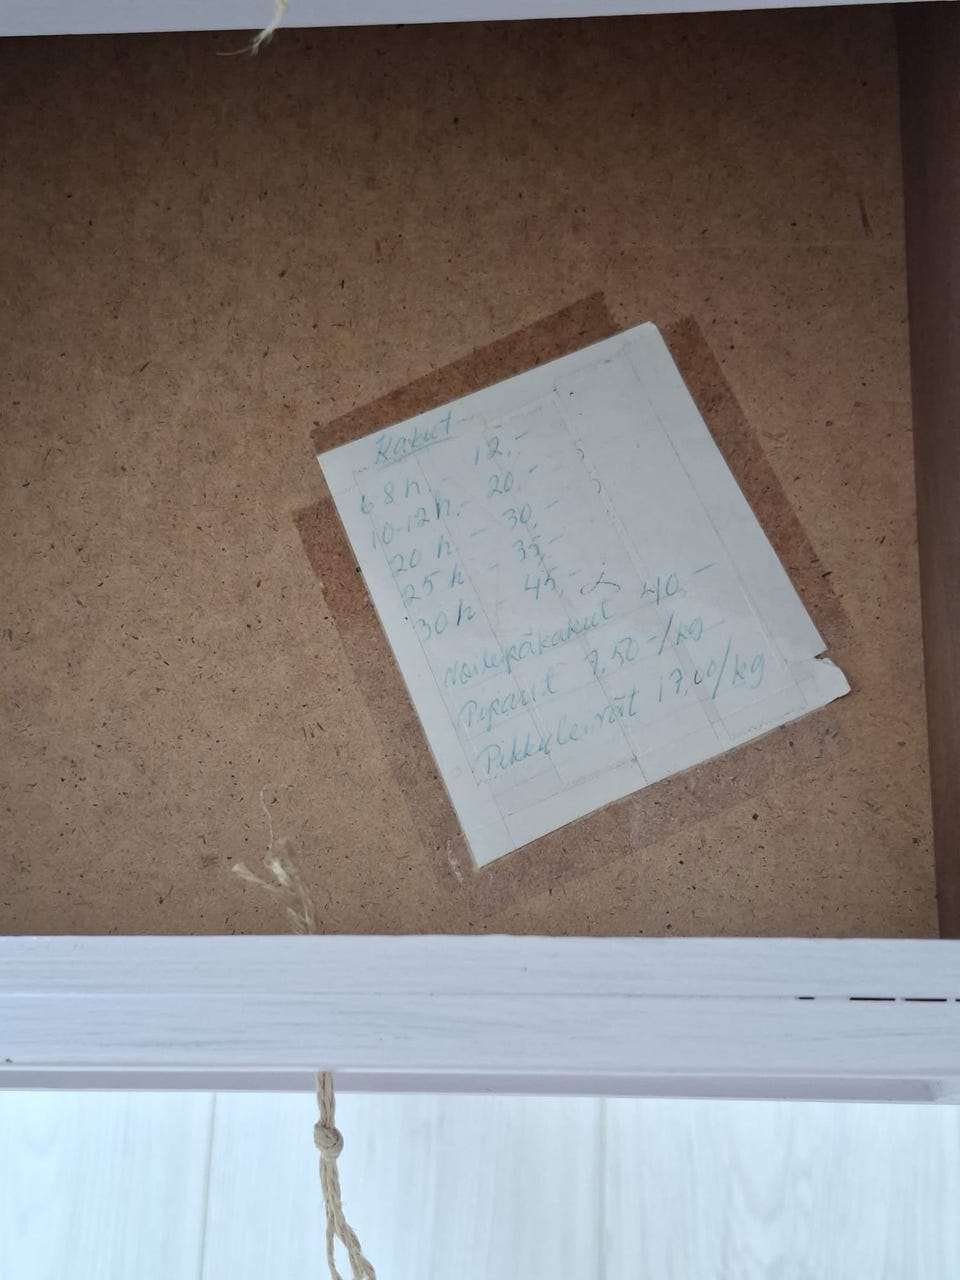 Kakut
6-8 h. - 12,-
10-12 h. - 20,-
20 h. - 30,-
25 h - 35,-
30 h - 45,-
kakut 40,-
Piparit 7,50-/kg
Pikkuleivät 17,00/kg